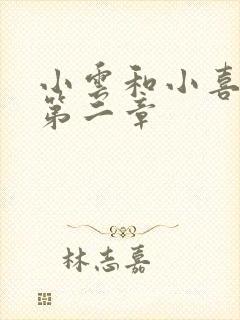 小雲和小喜
第二章
林志嘉